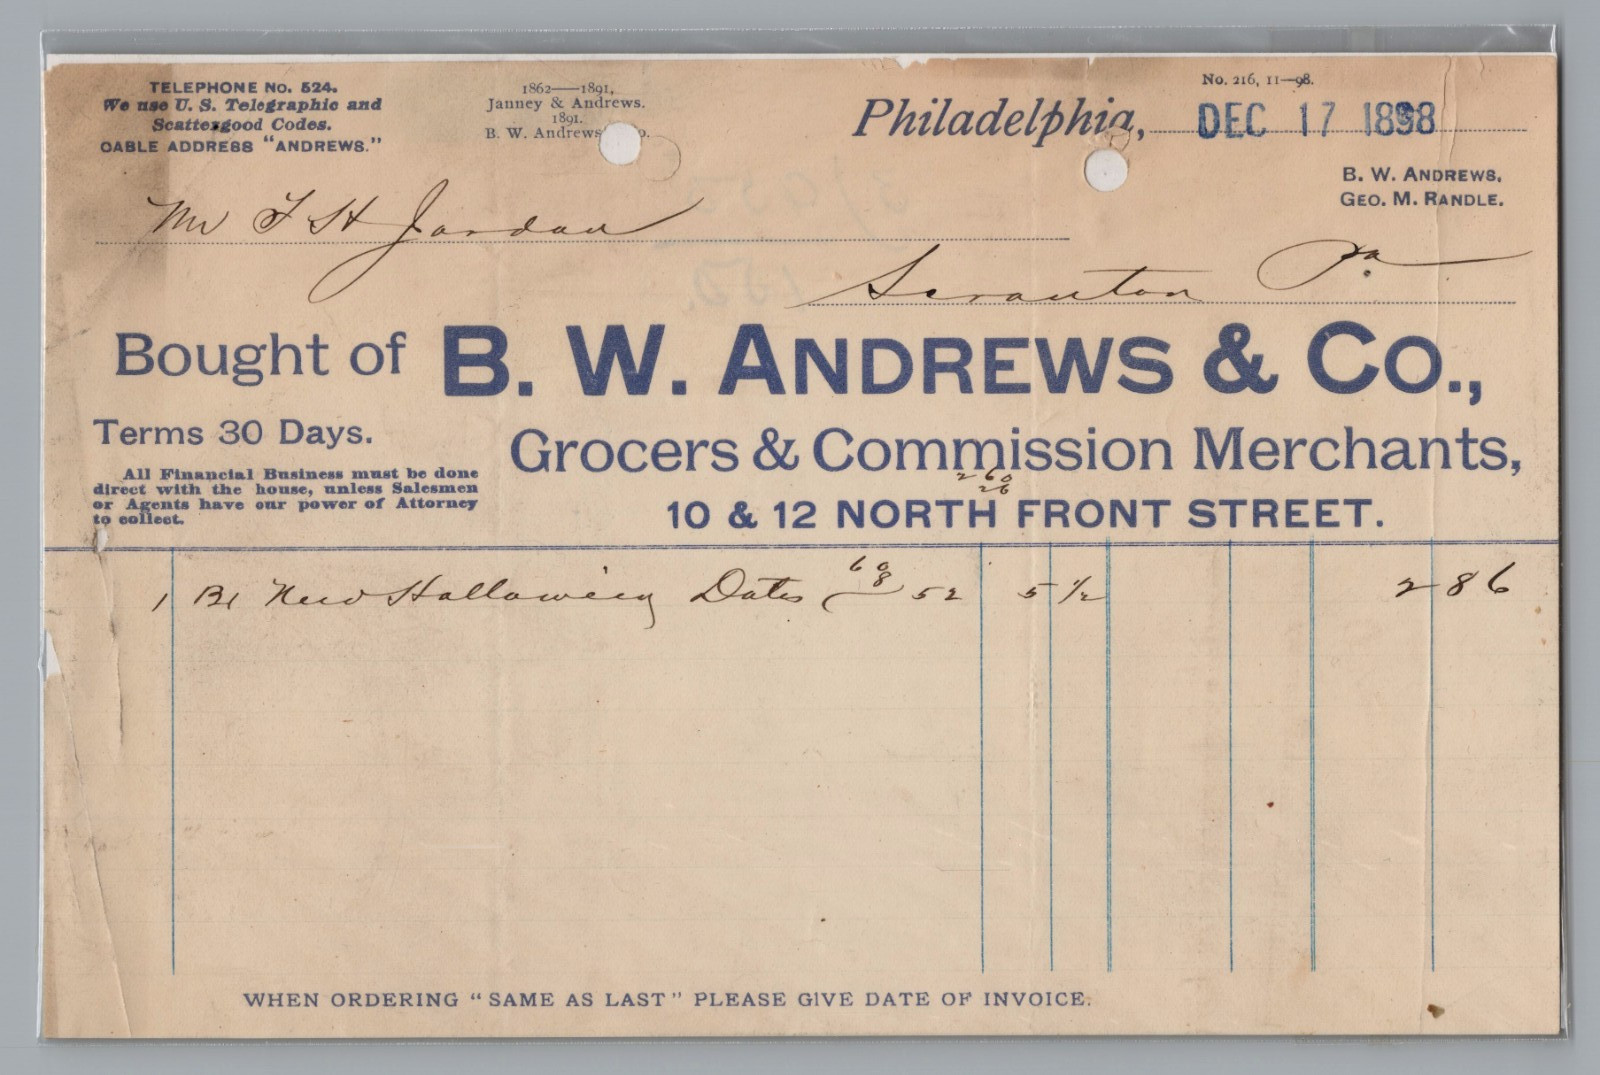 TELEPHONE No. 524.
We use U. S. Telegraphic and
Scattergood Codes.
CABLE ADDRESS "ANDREWS."
1862—1891,
Janney & Andrews.
1891.
B. W. Andrews
No. 216, 11—98.
Philadelphia, DEC 17 1898
B. W. ANDREWS.
GEO. M. RANDLE.
Mr F H Jordan
Scranton Pa.
Bought of B. W. ANDREWS & CO.,
Terms 30 Days.
Grocers & Commission Merchants,
All Financial Business must be done
direct with the house, unless Salesmen
or Agents have our power of Attorney
to collect.
260
26
10 & 12 NORTH FRONT STREET.
1 Bx New Hallowieey Dates 60 8 52 5 1/2 2 86
WHEN ORDERING "SAME AS LAST" PLEASE GIVE DATE OF INVOICE.